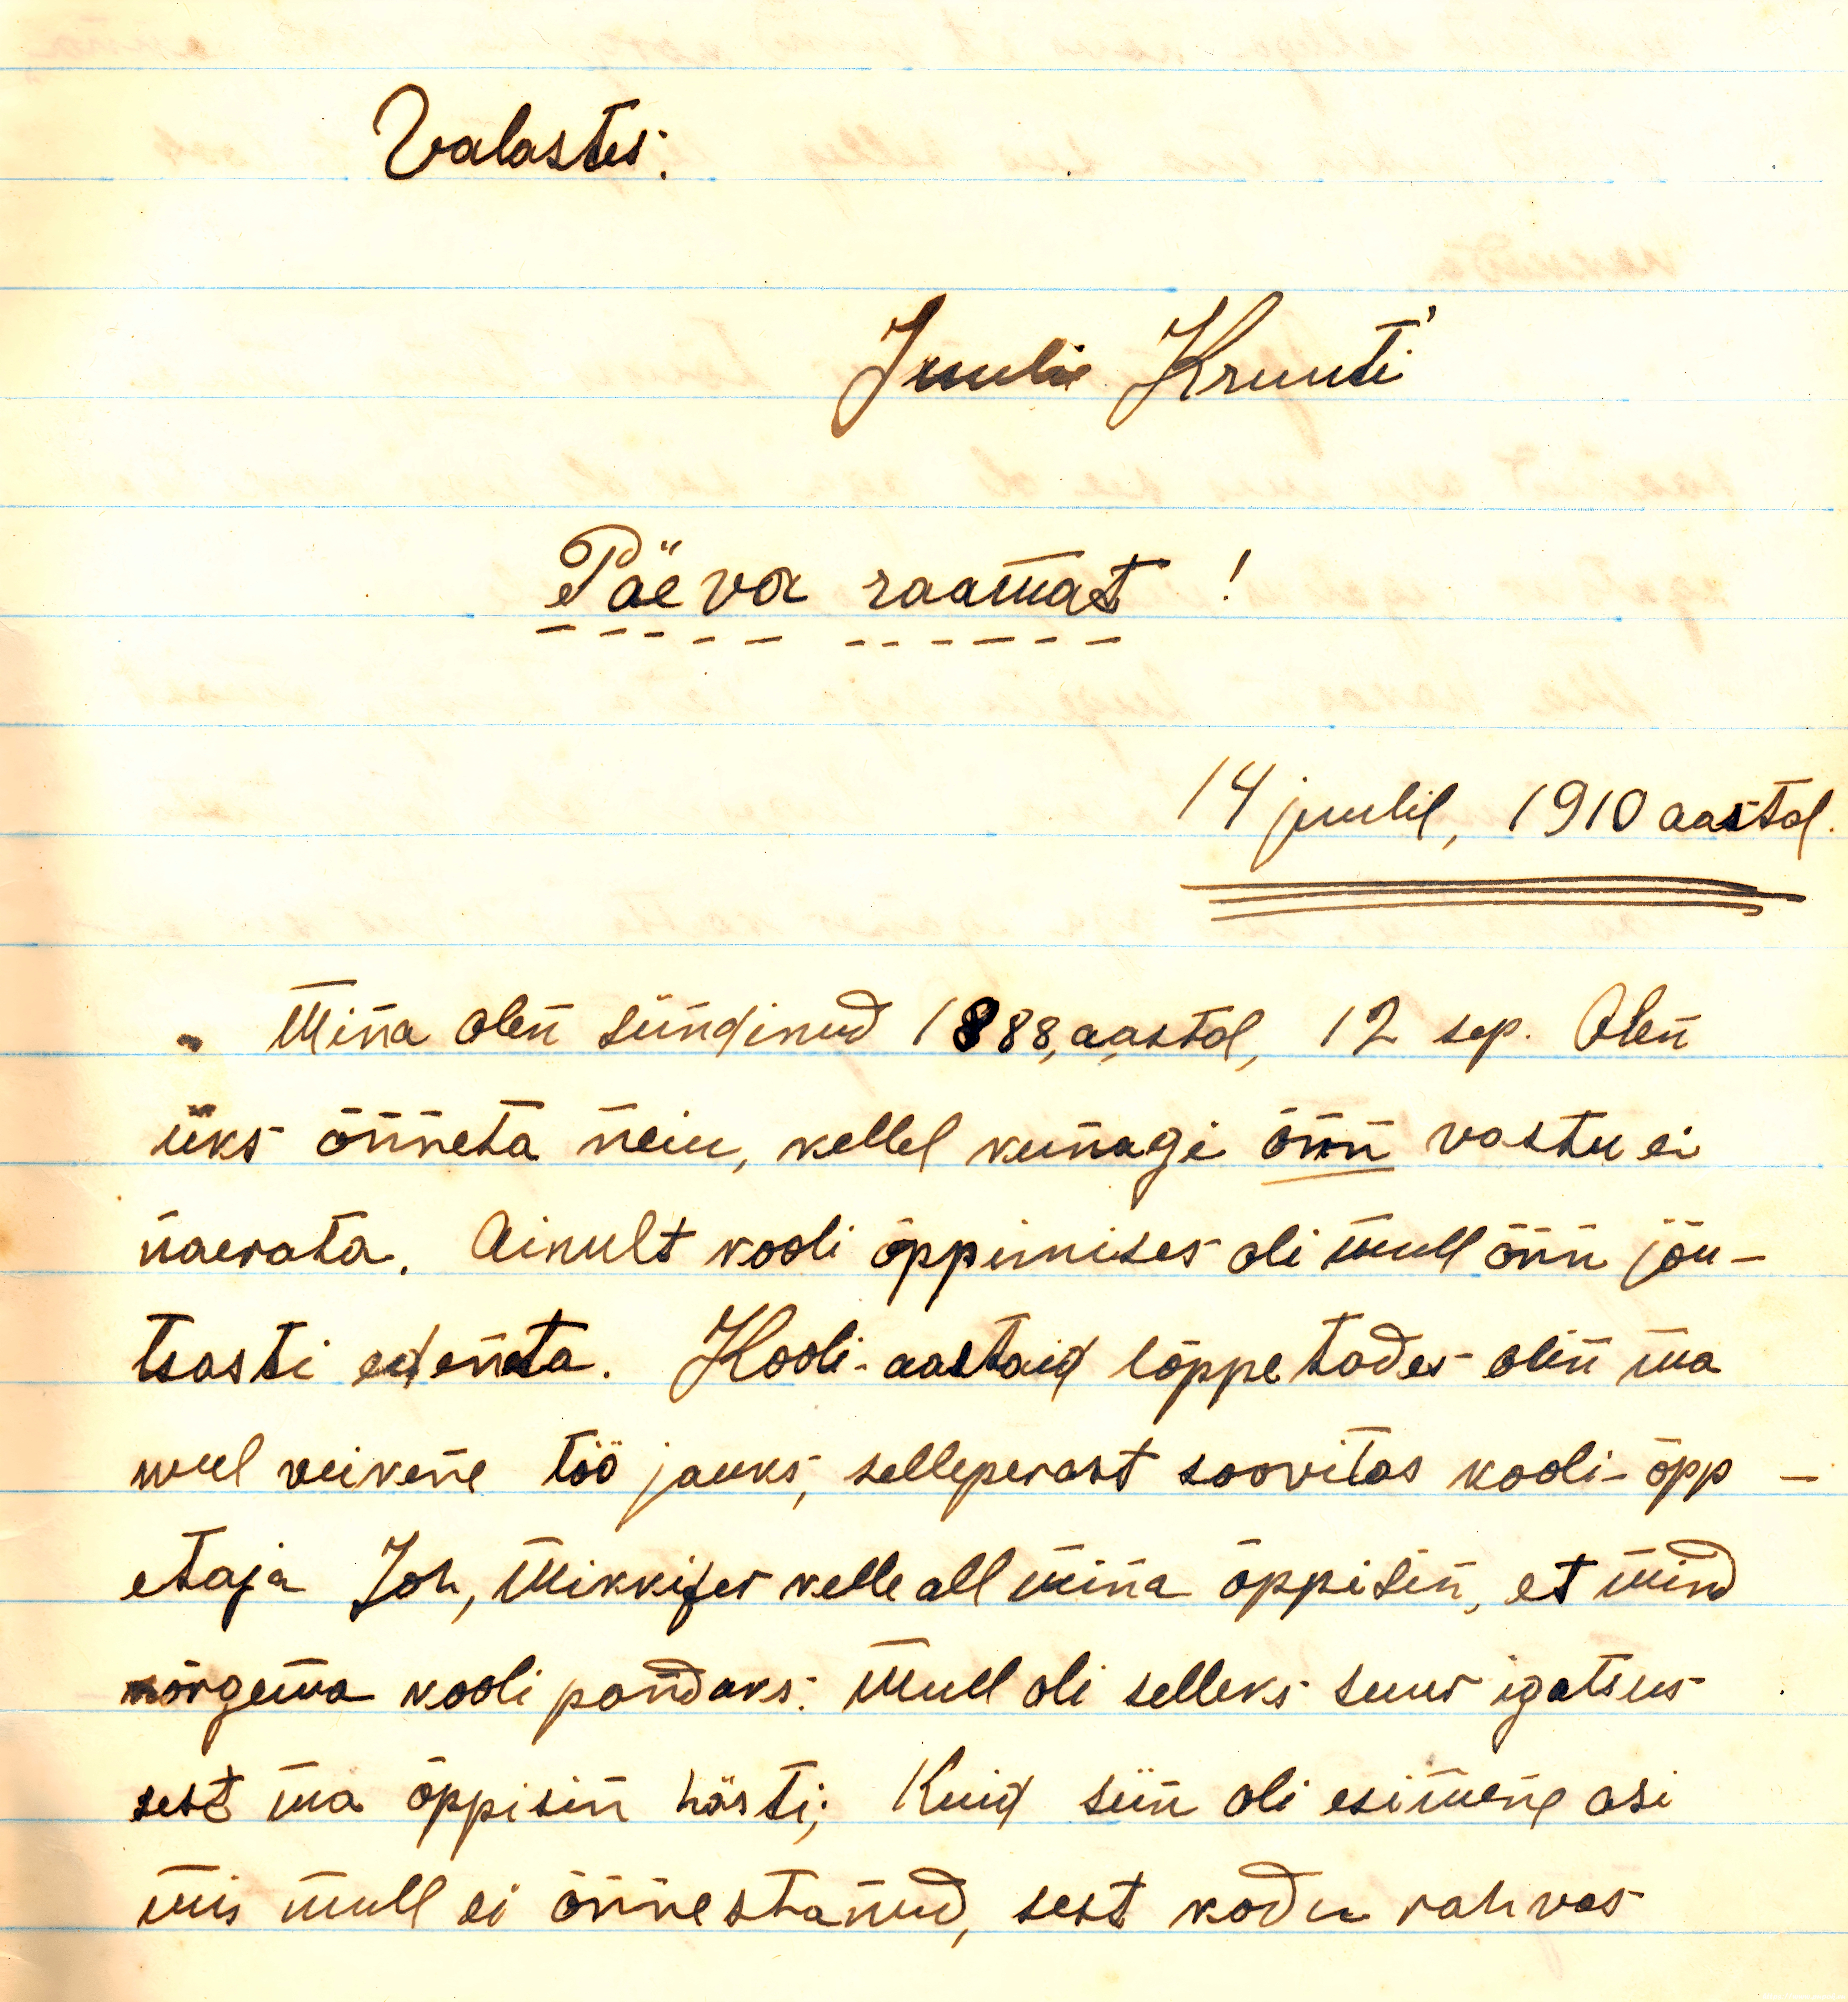 Valastes.
Juulie Kruuti'
Päeva raamat !
14 juulil, 1910 aastal.
Mina olen sündinud 1888, aastal, 12 sep. Olen
üks õnneta neiu, kellel kunagi õnn vastu ei
naerata. Ainult kooli õppimises oli mull õnn jõu-
tsasti edeneta. Kooli-aastaid lõppetades olin ma
weel veikene töö jauks,selleperast soovitas kooli-õpp-
etaja Joh, Mikkifer kelle all mina õppisin, et mind
kõrgema kooli pandaks. Mull oli selleks suur igatsus
sest ma õppisin hästi; Kuid siin oli esimene asi
mis mull ei õnnestanud, sest kodu rahvas